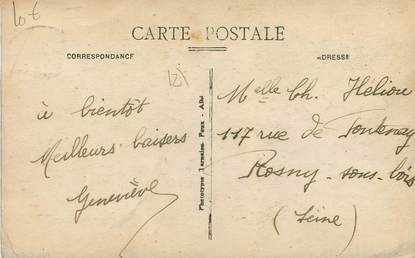 10 €
CARTE POSTALE
CORRESPONDANCE
ADRESSE
à bientôt
Meilleurs baisers
Geneviève
Phototypie Tarnaise Poux - Albi
Melle Ch. Hélion
117 rue de Fontenay
Rosny-sous-bois
(Seine)